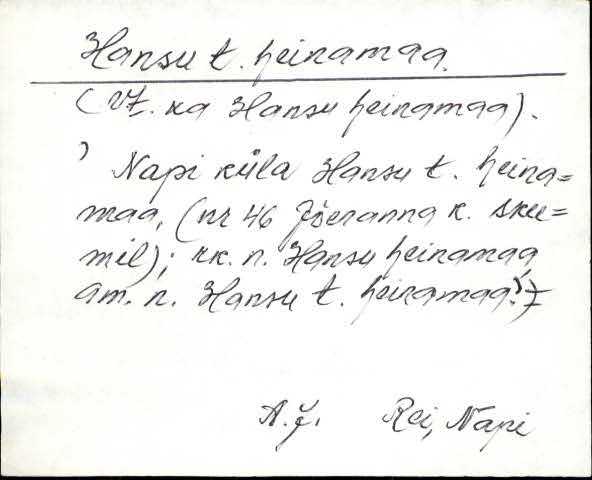 Hansu t. heinamaa.
(Vt. ka Hansu heinamaa).
) Napi küla Hansu t. heina=
maa, (nr 46 Jõeranna k. skee=
mil); rk. n. Hansu heinamaa,
am. n. Hansu t. heinamaa.)
A. J. Rei, Napi